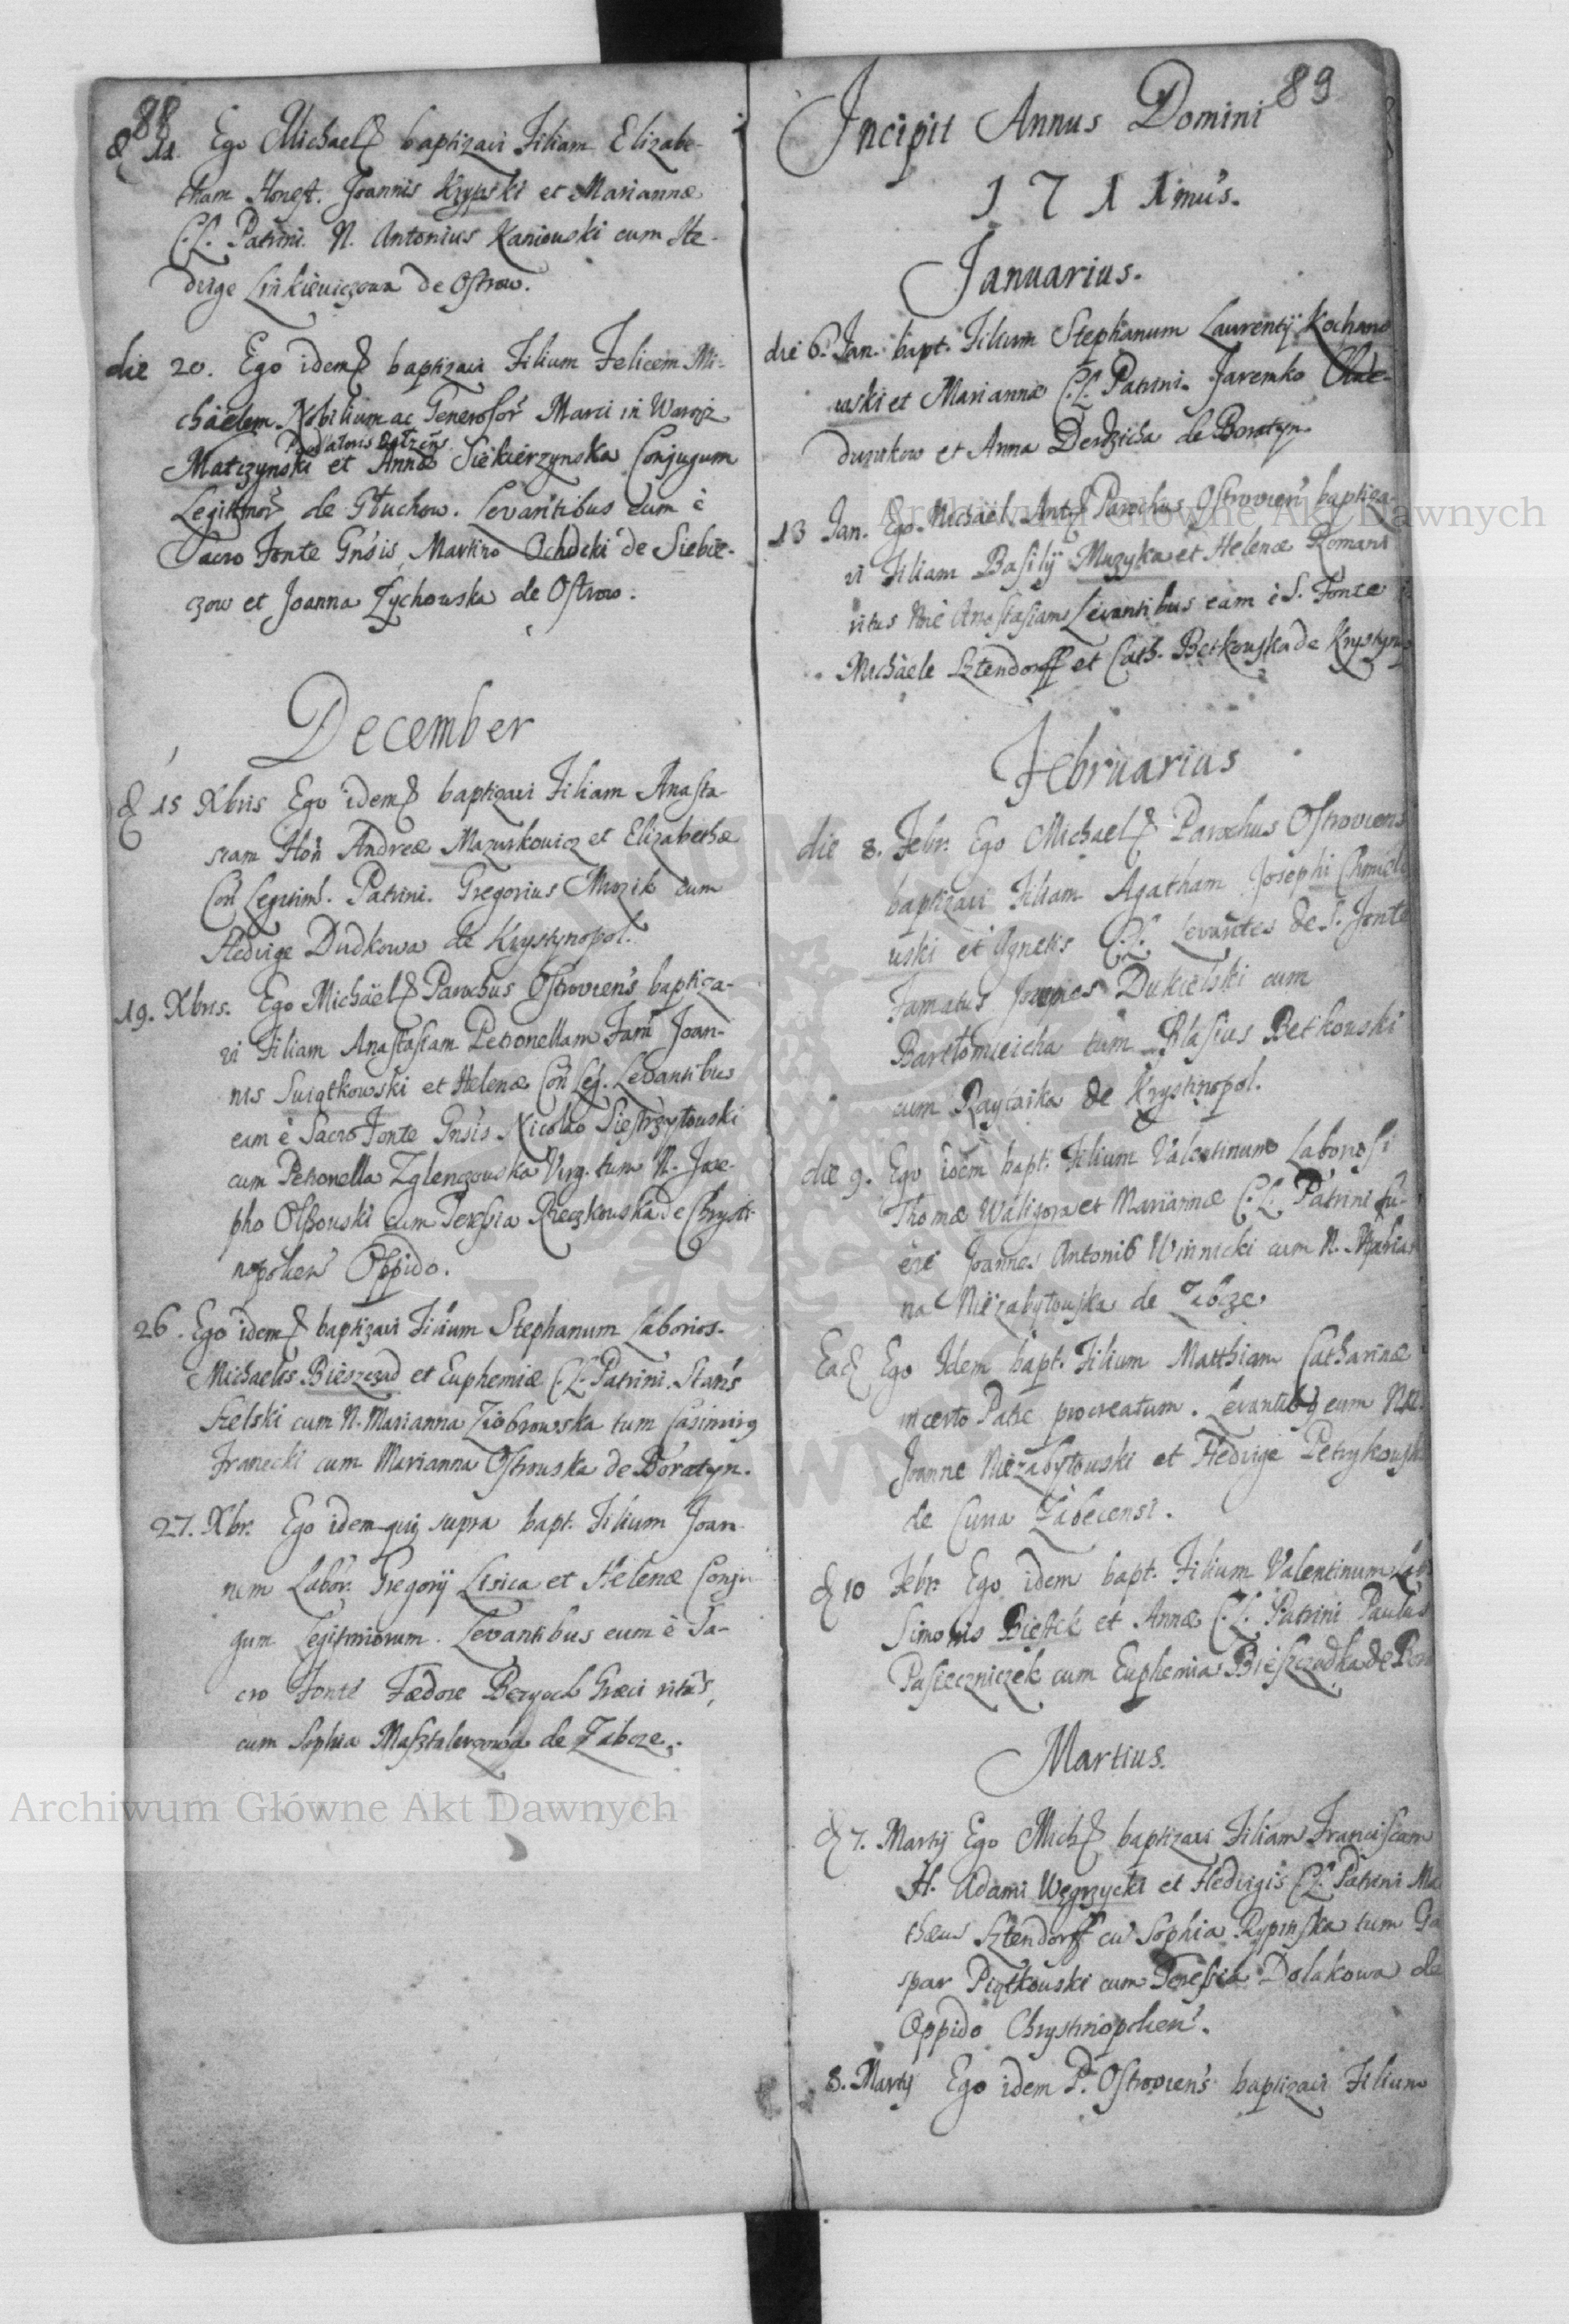 88
d 11. Ego Michael baptizavi Filiam Elizabe-
tham Honest. Joannis Krypski et Mariannæ
C.L. Patrini. N. Antonius Kaniouski cum He-
dvige Linkieviczowa de Ostrow.
die 20. Ego idem baptizavi Filium Felicem Mi-
chäelem Nobilium ac Generosor Marci in Waręz
Matczynski et Annæ Siekierzynska Conjugum
Legitimor de Głuchow. Levantibus eum è
Sacro Fonte Gnsis Martino Ochocki de Siebie-
czow et Joanna Zychowska de Ostrow.
December
d 15 Xbris Ego idem baptizavi Filiam Anasta-
siam Hon Andreæ Mazurkowicz et Elizabethæ
Con Legitim. Patrini. Gregorius Muzik cum
Hedvige Dudkowa de Krystynopol.
19. Xbris. Ego Michäel Parochus Ostroviens baptiza-
vi Filiam Anastasiam Petronellam Fam Joan-
nis Swiątkowski et Helenæ Con Leg. Levantibus
eam è Sacro Fonte Gnsis Nicolao Siestrzytouski
cum Petronella Zglenczouska Virg. tum N. Jose-
pho Olszouski cum Teressia Rzeczkouska de Chrysti-
nopolien Oppido.
26. Ego idem baptizavi Filium Stephanum Laborios.
Michaelis Bieszczad et Euphemiæ C.L. Patrini. Stans
Szelski cum N. Marianna Ziobrowska tum Casimirg
Franecki cum Marianna Ostrouska de Boratyn.
27. Xbr. Ego idem qui supra bapt. Filium Joan-
nem Labor. Gregorij Lisica et Helenæ Conju-
gum Legitimorum. Levantibus eum è Sa-
cro Fonte Fædore Bezpach Græci ritus,
cum Sophia Masztalerzowa de Zabcze.
89
Incipit Annus Domini
1711mus.
Januarius.
die 6. Jan. bapt. Filium Stephanum Laurentij Kochano
wski et Mariannæ C.L. Patrini. Jaremko
et Anna Derdzicha de Boratyn
13 Jan. Ego Michäel Ant Parochus Ostroviens baptiza-
vi Filiam Basilij Muzyka et Helenæ Romani
ritus nne Anastasiam Levantibus eam è S. Fonte
Michäele Sztendorff et Cath. Betkouska de Krystynop
Februarius
die 8. Febr. Ego Michael Parochus Ostroviens
baptizavi Filiam Agatham Josephi Chmiele
uski et Agnetis C.L. Levantes de S. Fonte
Famatus Joannes Dukielski cum
Bartłomieicha tum Blasius Betkouski
cum Raycaika de Krystinopol.
die 9. Ego idem bapt. Filium Valentinum Laboriosi
Thomæ Waligora et Mariannæ C.L. Patrini fu-
ere Joannes Antoni9 Winnicki cum N. Maria
na Niezabytouska de Zabcze
Ead Ego Idem bapt. Filium Matthiam Catharinæ
incerto Patre procreatum. Levantibg eum NN.
Joanne Niezabytouski et Hedvige Petrykouska
de Curia Zabecensi.
d 10 Febr. Ego idem bapt. Filium Valentinum Lab
Simonis Bielek et Annæ C.L. Patrini Paulus
Pasieczniczek cum Euphemia Bieszczadka de Bor
Martius.
d 7. Martij Ego Mich baptizavi Filiam Franciscam
H. Adami Węgrzycki et Hedvigis C.L. Patrini Ma
thæus Sztendorff cu Sophia Rypinska tum Ga
spar Piątkouski cum Teressia Dolakowa de
Oppido Chrystinopolien.
8. Martij Ego idem P. Ostroviens baptizavi Filium
Archiwum Główne Akt Dawnych
Archiwum Główne Akt Dawnych